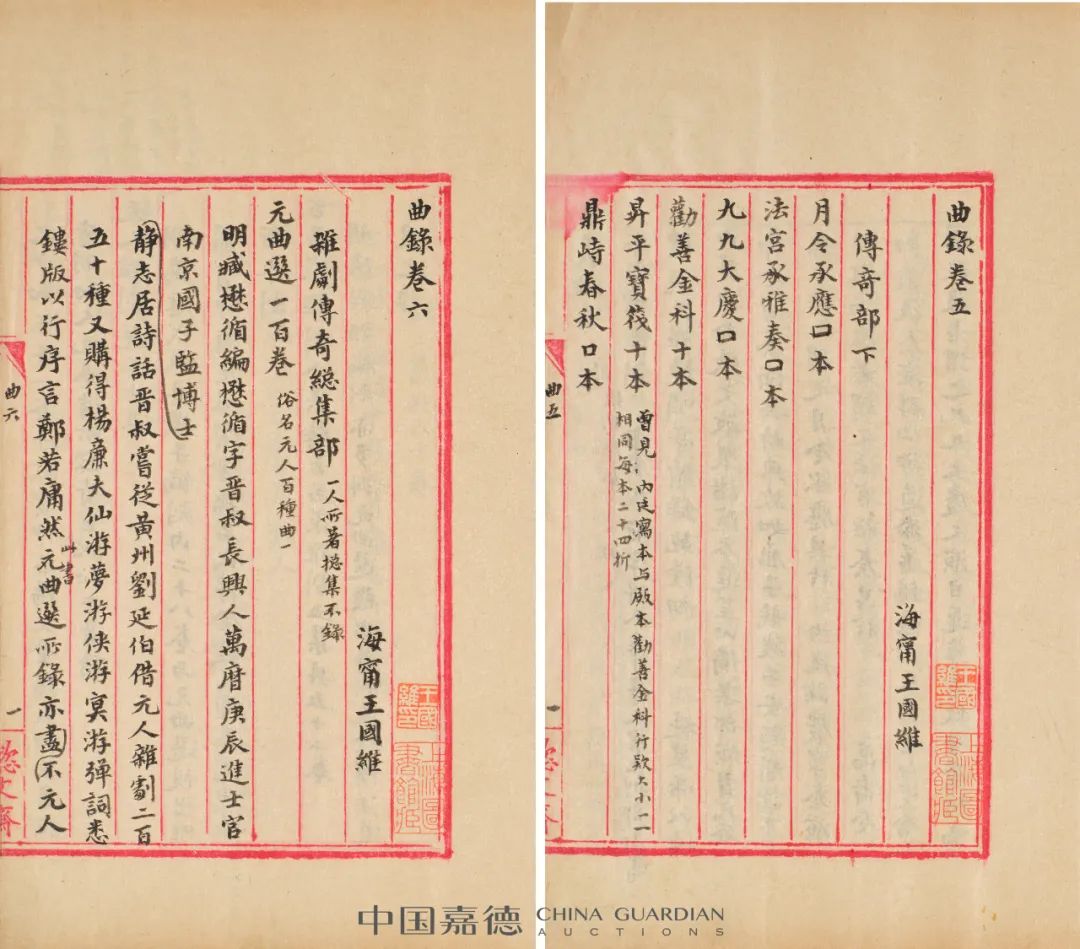 曲錄卷五
海甯王國維
傳奇部下
月令承應口本
法宮承雅奏口本
九九大慶口本
勸善金科十本
昇平寶筏十本 曾見內廷寫本与殿本勸善金科行款大小一一
相同每本二十四折
鼎峙春秋口本
曲五
一
王國維印
上海圖書館藏
曲錄卷六
海甯王國維
雜劇傳奇総集部 一人所著総集不錄
元曲選一百卷 俗名元人百種曲一
明臧懋循編懋循字晋叔長興人萬曆庚辰進士官
南京國子監博士
静志居詩話晋叔嘗從黃州劉延伯借元人雜劇二百
五十種又購得楊廉夫仙游夢游俠游冥游彈詞悉
鏤版以行序言鄭若庸然此書元曲選所錄亦盡不元人
曲六
一
王國維印
上海圖書館藏
中国嘉德 CHINA GUARDIAN
AUCTIONS